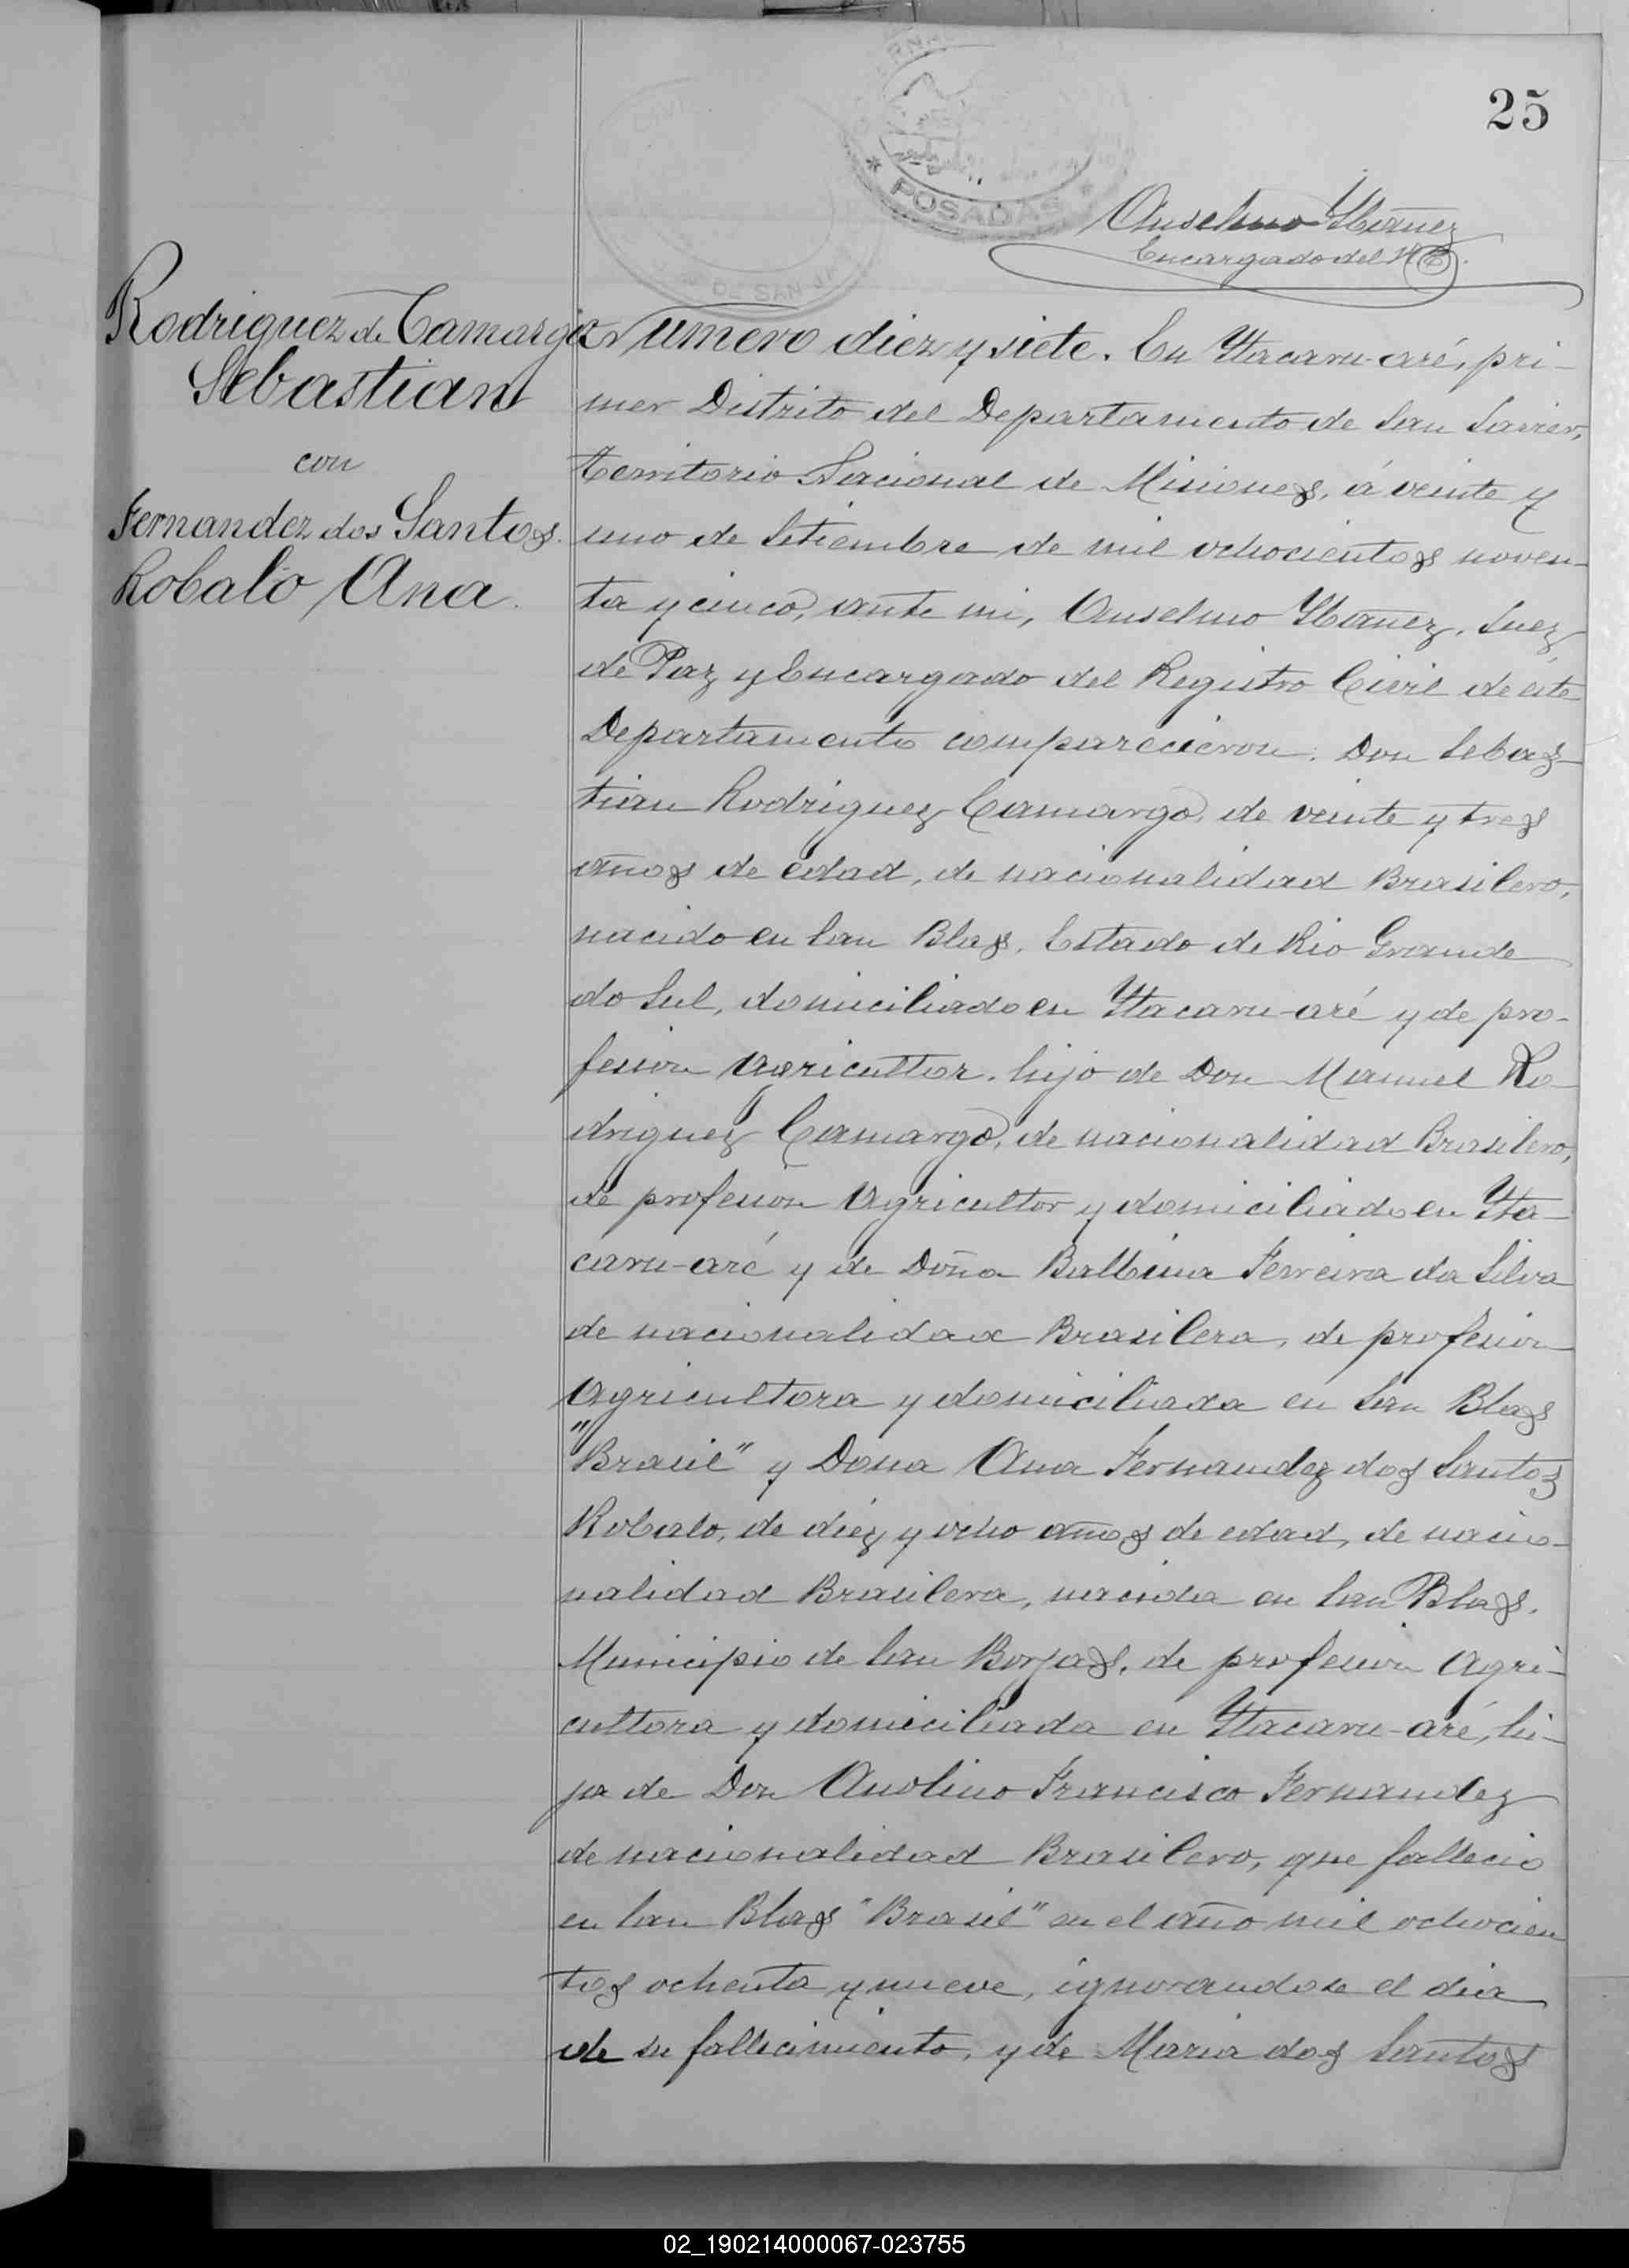 25
POSADAS
DE SAN JA
Anselmo Ybañez
Encargado del R.C.
Rodriguez de Camargo
Sebastian
con
Fernandez dos Santos
Robalo Ana.
Número diez y siete. En Ytacaru-aré, pri-
mer Distrito del Departamento de San Javier,
Territorio Nacional de Misiones, á veinte y
uno de Setiembre de mil ochocientos noven-
ta y cinco, ante mi, Anselmo Ybañez, Juez
de Paz y Encargado del Registro Civil de éste
Departamento comparecieron: Don Sebas-
tian Rodriguez Camargo, de veinte y tres
años de edad, de nacionalidad Brasilero,
nacido en San Blas, Estado de Rio Grande
do Sul, domiciliado en Ytacaru-aré y de pro-
fesion Agricultor, hijo de Don Manuel Ro-
driguez Camargo, de nacionalidad Brasilero,
de profesion Agricultor y domiciliado en Yta-
caru-aré y de Doña Balbina Ferreira da Silva
de nacionalidad Brasilera, de profesion
Agricultora y domiciliada en San Blas
"Brasil" y Dona Ana Fernandez dos Santos
Robalo, de diez y ocho años de edad, de nacio-
nalidad Brasilera, nacida en San Blas,
Municipio de San Borjas, de profesion Agri-
cultora y domiciliada en Ytacaru-aré, hi-
ja de Don Anolino Francisco Fernandez
de nacionalidad Brasilero, que fallecio
en San Blas "Brasil" en el año mil ochocien
tos ochenta y nueve, ignorandose el dia
de su fallecimiento, y de Maria dos Santos
02_190214000067-023755